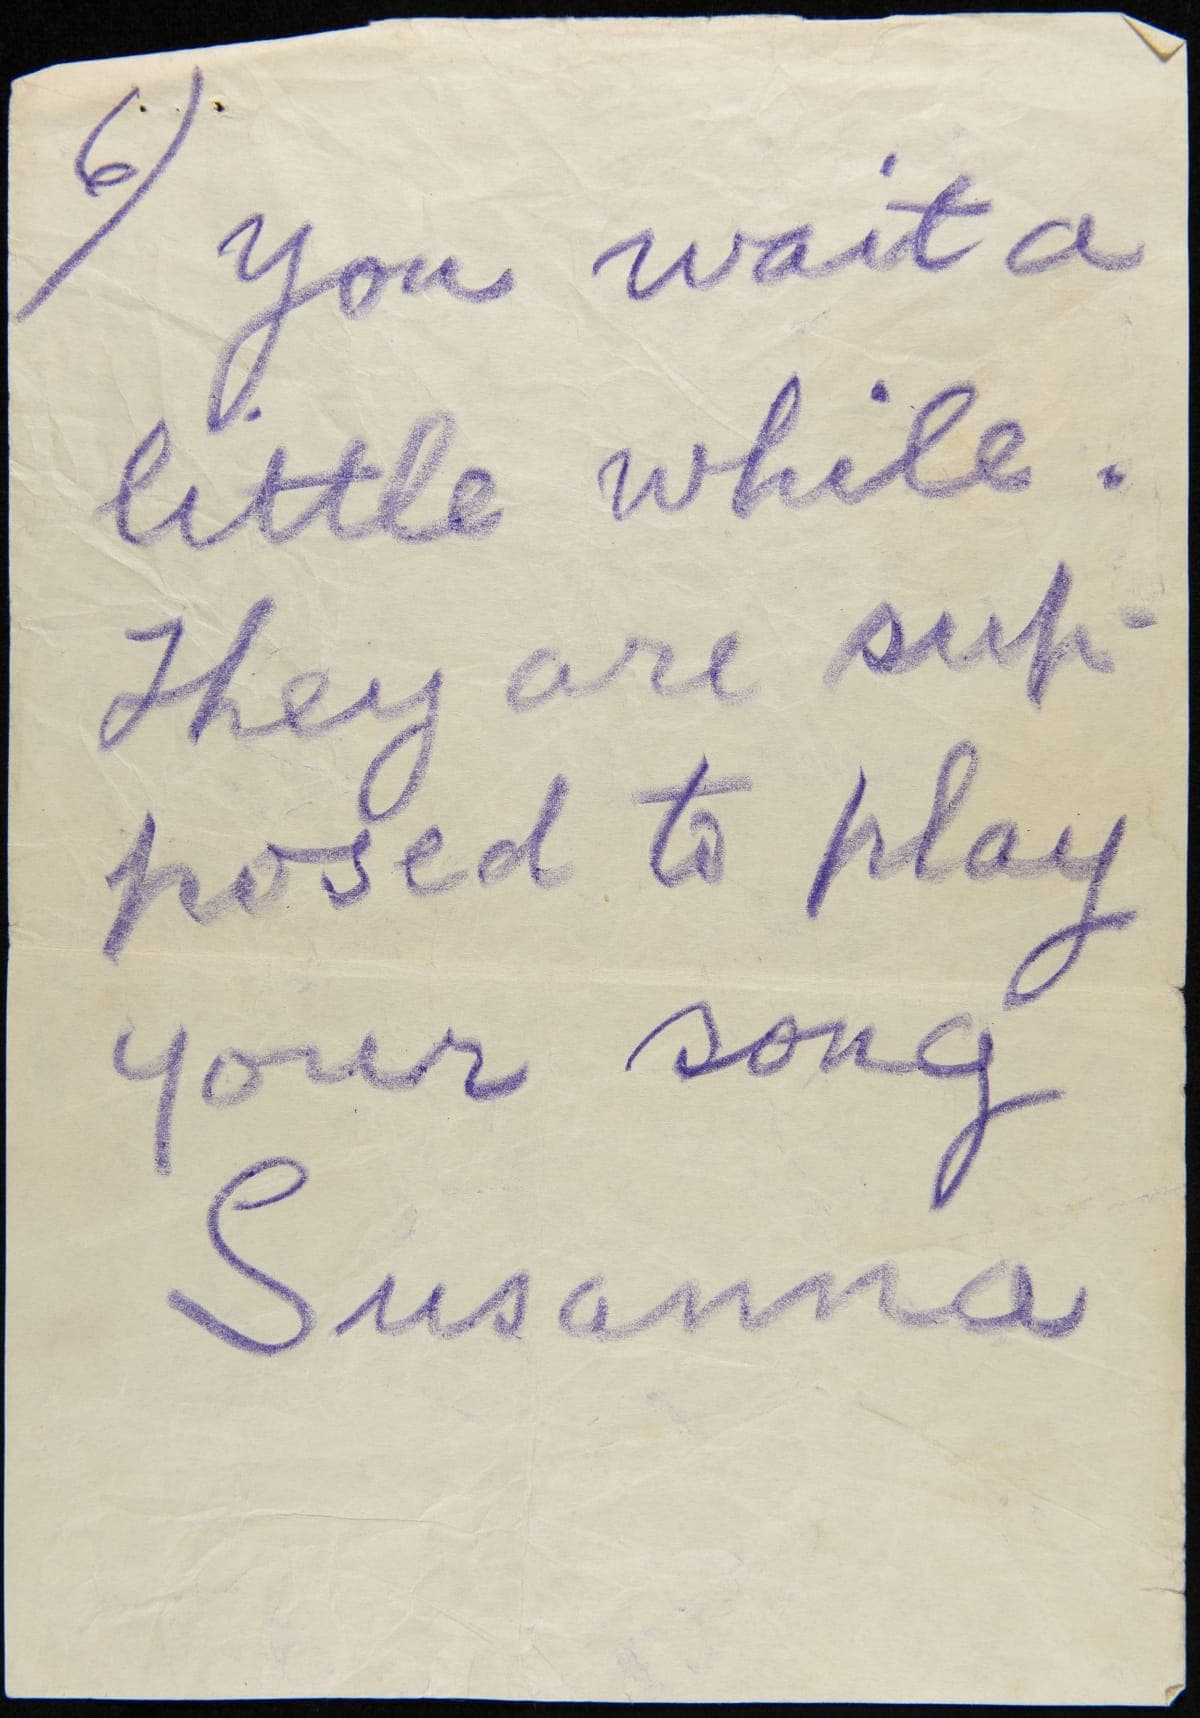 6)
you wait a
little while.
They are sup-
posed to play
your song
Susanna